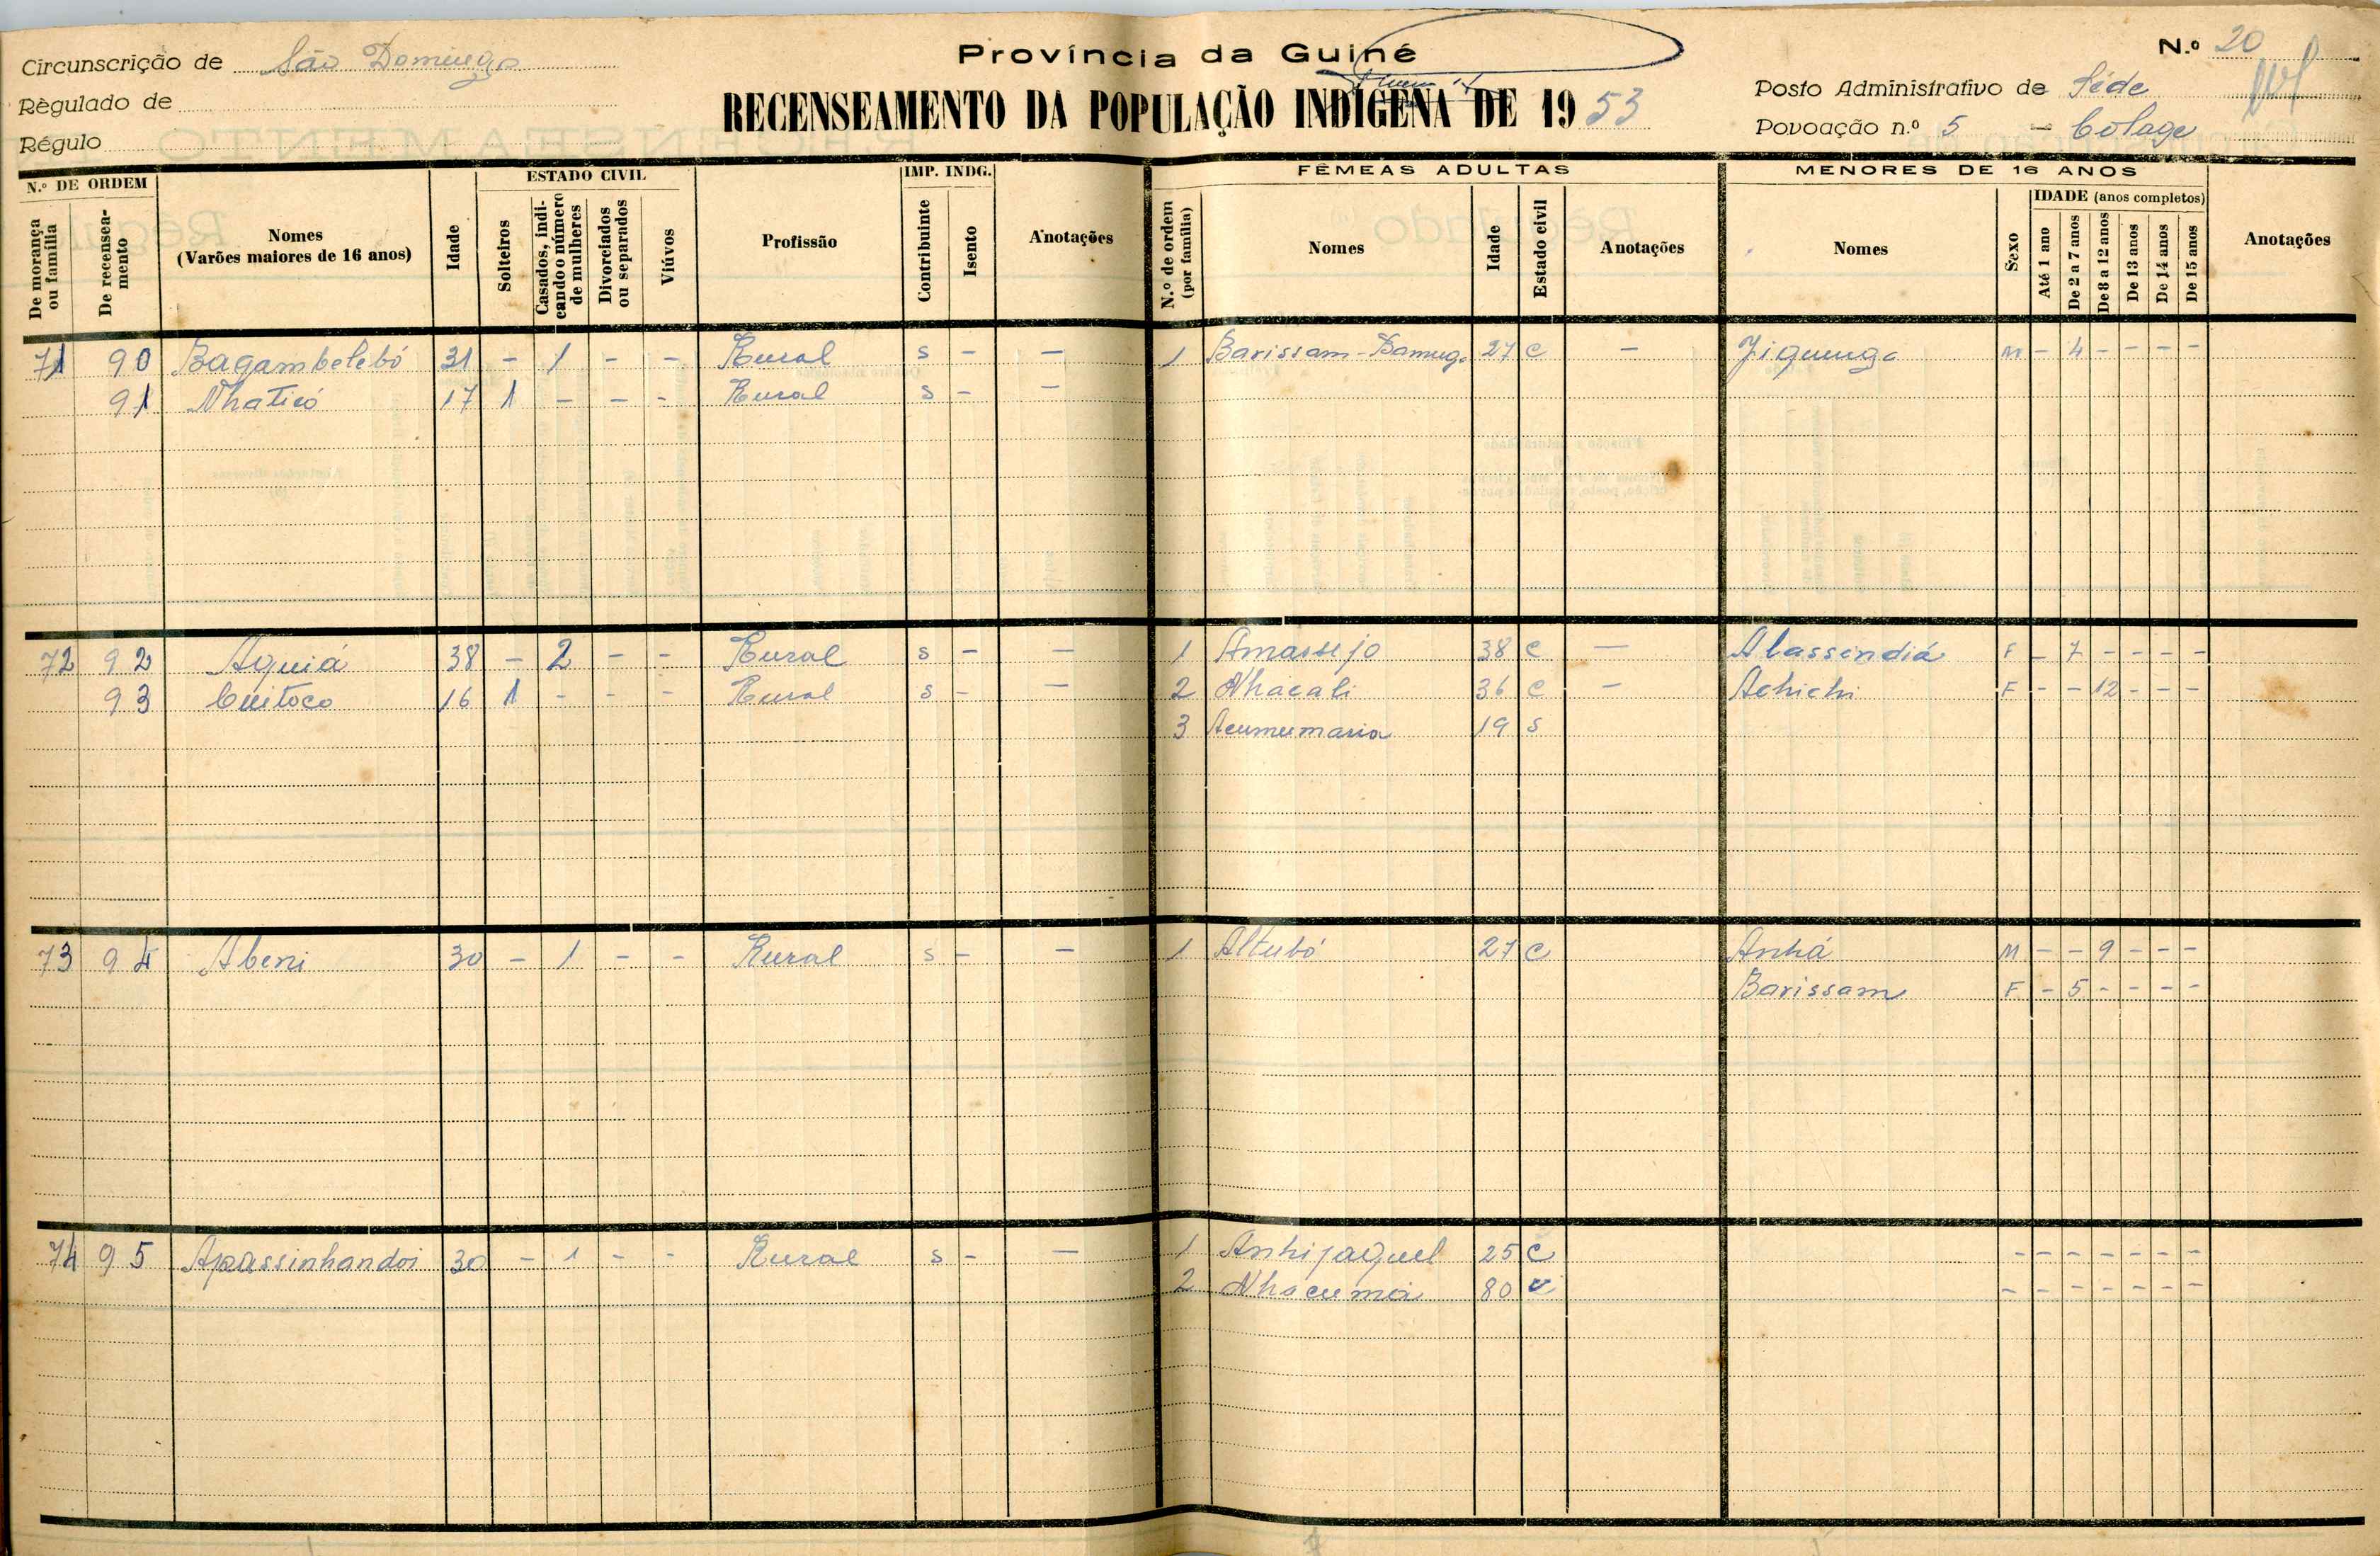 Província da Guiné
N.º 20
Circunscrição de São Domingo
Règulado de
Régulo
RECENSEAMENTO DA POPULAÇÃO INDÍGENA DE 1953
Posto Administrativo de Séde
Povoação n.º 5 - Colage
N.º DE ORDEM
De morança ou família
De recenseamento
Nomes
(Varões maiores de 16 anos)
Idade
ESTADO CIVIL
Solteiros
Casados, indicando o número de mulheres
Divorciados ou separados
Viúvos
Profissão
IMP. INDG.
Contribuinte
Isento
Anotações
FÊMEAS ADULTAS
N.º de ordem (por família)
Nomes
Idade
Estado civil
Anotações
MENORES DE 16 ANOS
Nomes
Sexo
IDADE (anos completos)
Até 1 ano
De 2 a 7 anos
De 8 a 12 anos
De 13 anos
De 14 anos
De 15 anos
Anotações
71 90 Bagambelebó 31 - 1 - - Rural s - - 1 Barissam-Bamuga 27 C - Jiguunga M - 4 - - - -
91 Nhaticó 17 1 - - - Rural s - -
72 92 Aguiá 38 - 2 - - Rural s - - 1 Amassejo 38 C - Alassendiá F - 7 - - - -
93 Cuitoco 16 1 - - - Rural s - - 2 Nhacali 36 C - Achichi F - - 12 - - -
3 Acumumaria 19 S
73 94 Abeni 30 - 1 - - Rural s - - 1 Altubó 27 C Anhá M - - 9 - - -
Barissam F - 5 - - - -
74 95 Apassinhandoi 30 - 1 - - Rural s - - 1 Anhijaguel 25 C - - - - - - -
2 Nhacumoi 80 V - - - - - - -